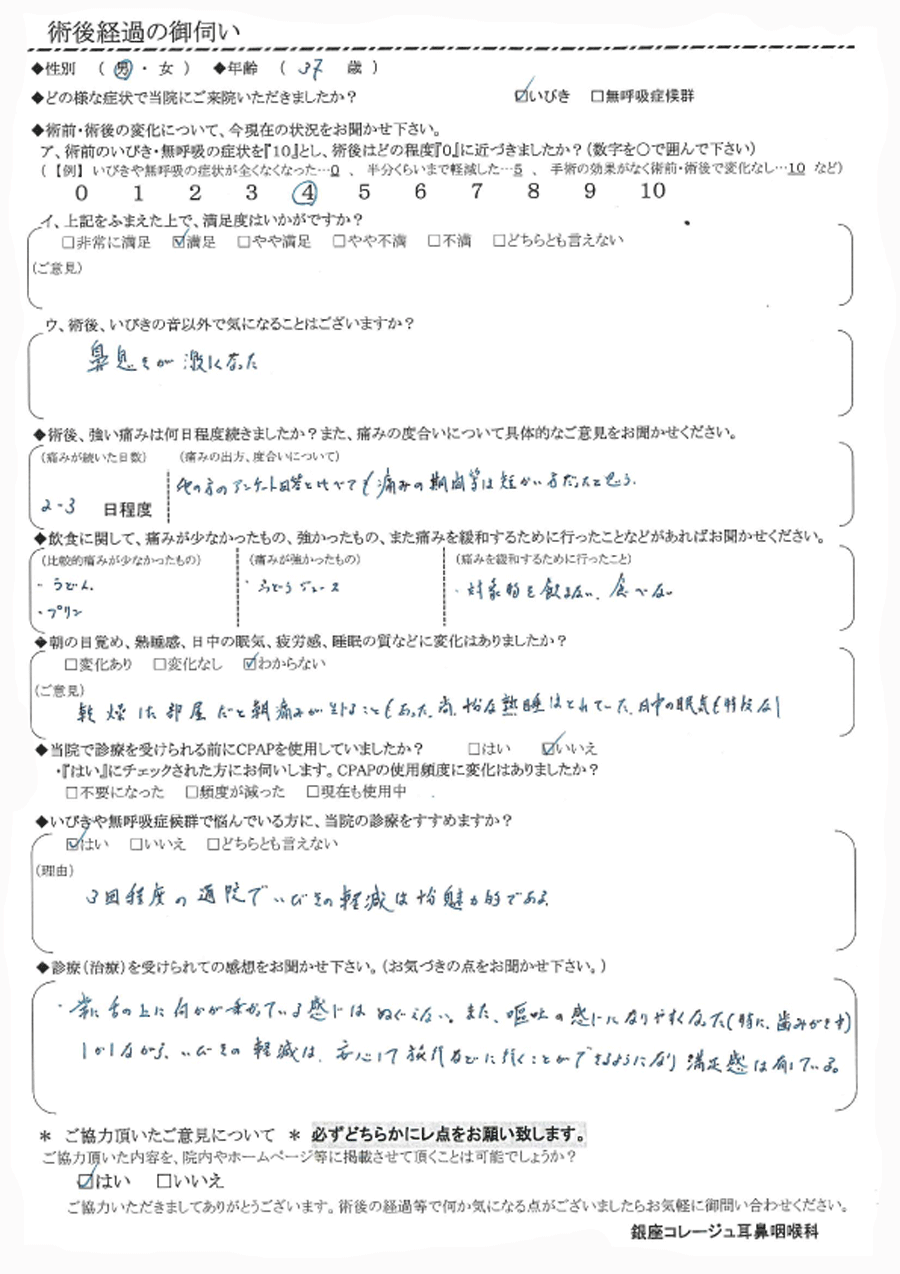 術後経過の御伺い
◆性別 (男・女) ◆年齢 (37 歳)
◆どの様な症状で当院にご来院いただきましたか? ☑いびき □無呼吸症候群
◆術前・術後の変化について、今現在の状況をお聞かせ下さい。
ア、術前のいびき・無呼吸の症状を『10』とし、術後はどの程度『0』に近づきましたか?(数字を○で囲んで下さい)
(【例】いびきや無呼吸の症状が全くなくなった…0 、 半分くらいまで軽減した…5 、 手術の効果がなく術前・術後で変化なし…10 など)
0 1 2 3 4 5 6 7 8 9 10
イ、上記をふまえた上で、満足度はいかがですか?
□非常に満足 ☑満足 □やや満足 □やや不満 □不満 □どちらとも言えない
(ご意見)
ウ、術後、いびきの音以外で気になることはございますか?
鼻息をが激しくなった
◆術後、強い痛みは何日程度続きましたか?また、痛みの度合いについて具体的なご意見をお聞かせください。
(痛みが続いた日数) (痛みの出方、度合いについて)
2-3 日程度 他の方のアンケート回答と比べても痛みの期間等は短かい方だったと思う.
◆飲食に関して、痛みが少なかったもの、強かったもの、また痛みを緩和するために行ったことなどがあればお聞かせください。
(比較的痛みが少なかったもの) (痛みが強かったもの) (痛みを緩和するために行ったこと)
・うどん ・ぶどうジュース ・対象物を飲まない、食べない
・プリン
◆朝の目覚め、熟睡感、日中の眠気、疲労感、睡眠の質などに変化はありましたか?
□変化あり □変化なし ☑わからない
(ご意見)
乾燥した部屋だと朝痛みが生じることもあった。尚、熟睡はとれていた、日中の眠気も特段なし
◆当院で診療を受けられる前にCPAPを使用していましたか? □はい ☑いいえ
・『はい』にチェックされた方にお伺いします。CPAPの使用頻度に変化はありましたか?
□不要になった □頻度が減った □現在も使用中
◆いびきや無呼吸症候群で悩んでいる方に、当院の診療をすすめますか?
☑はい □いいえ □どちらとも言えない
(理由)
3回程度の通院でいびきの軽減は魅力的である
◆診療(治療)を受けられての感想をお聞かせ下さい。(お気づきの点をお聞かせ下さい。)
・常に舌の上に何かが乗かっている感じはぬぐえない。また、嘔吐の感じになりやすくなった(特に、歯みがき時)
しかしながら、いびきの軽減は、安心して旅行などに行くことができるようになり満足感は有している。
* ご協力頂いたご意見について * 必ずどちらかにレ点をお願い致します。
ご協力頂いた内容を、院内やホームページ等に掲載させて頂くことは可能でしょうか?
☑はい □いいえ
ご協力いただきましてありがとうございます。術後の経過等で何か気になる点がございましたらお気軽に御問い合わせください。
銀座コレージュ耳鼻咽喉科